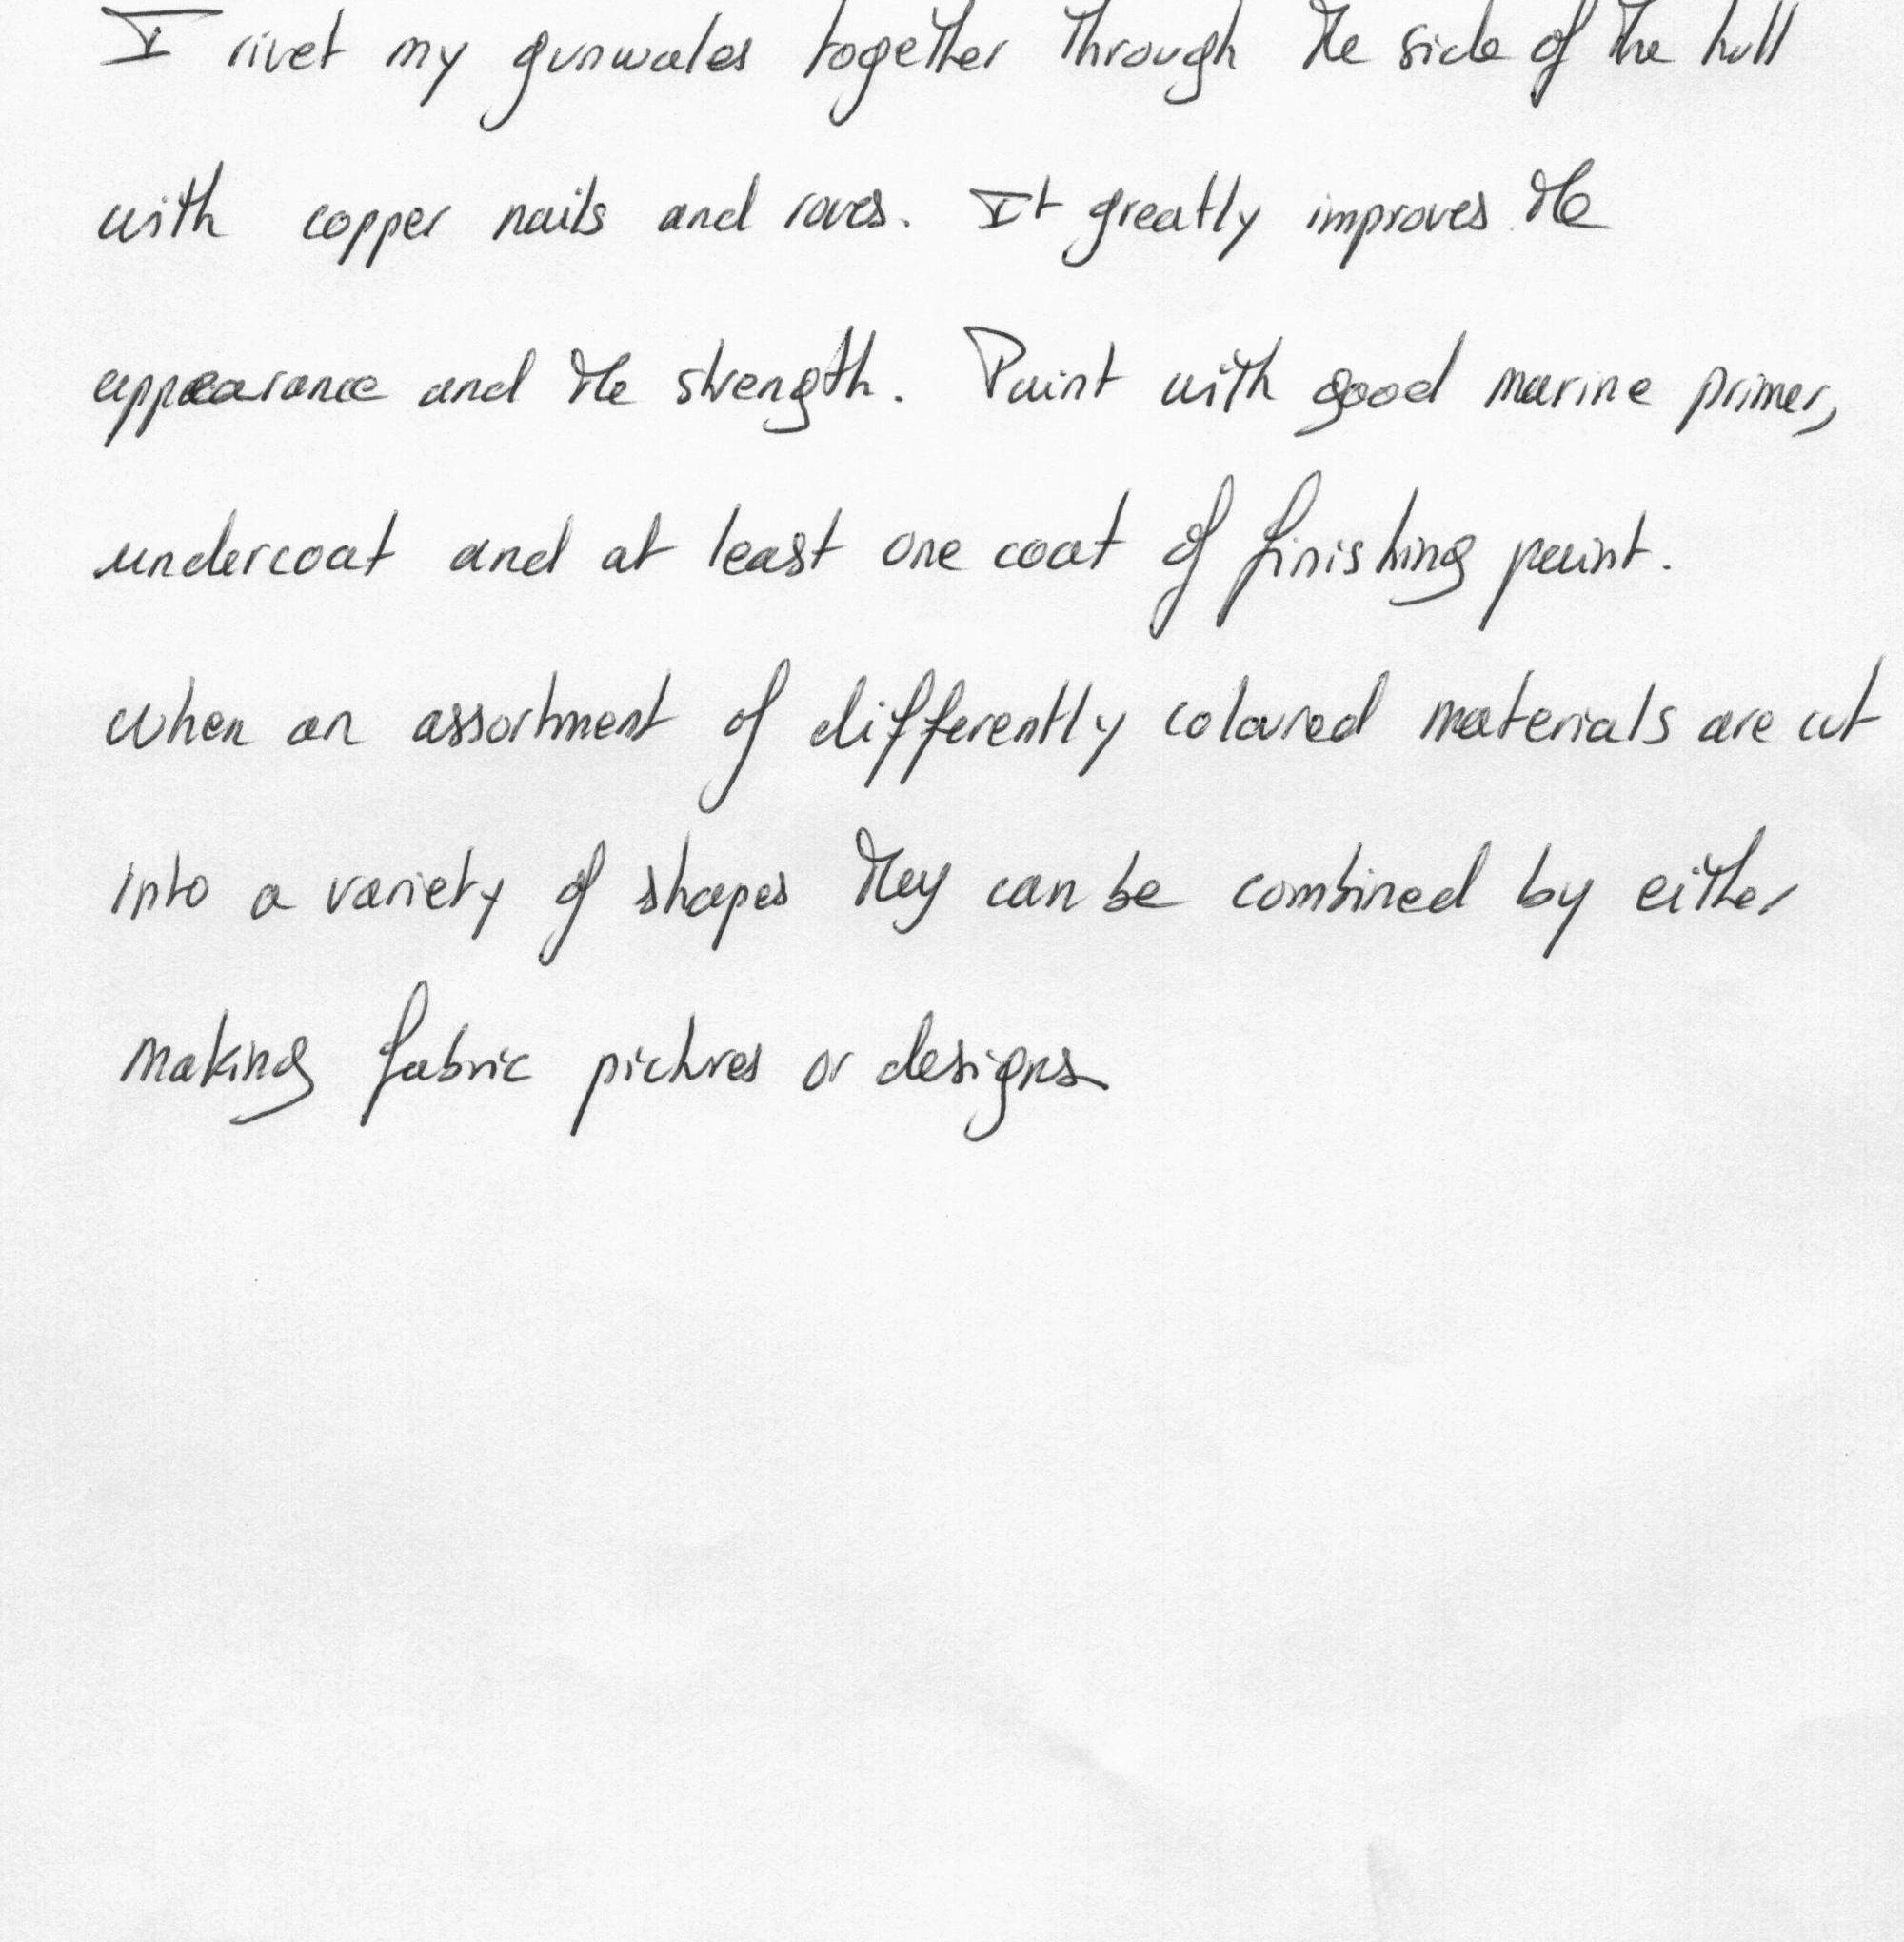 I rivet my gunwales together through the side of the hull
with copper nails and roves. It greatly improves the
appearance and the strength. Paint with good marine primer,
undercoat and at least one coat of finishing paint.
When an assortment of differently coloured materials are cut
into a variety of shapes they can be combined by either
making fabric pictures or designs